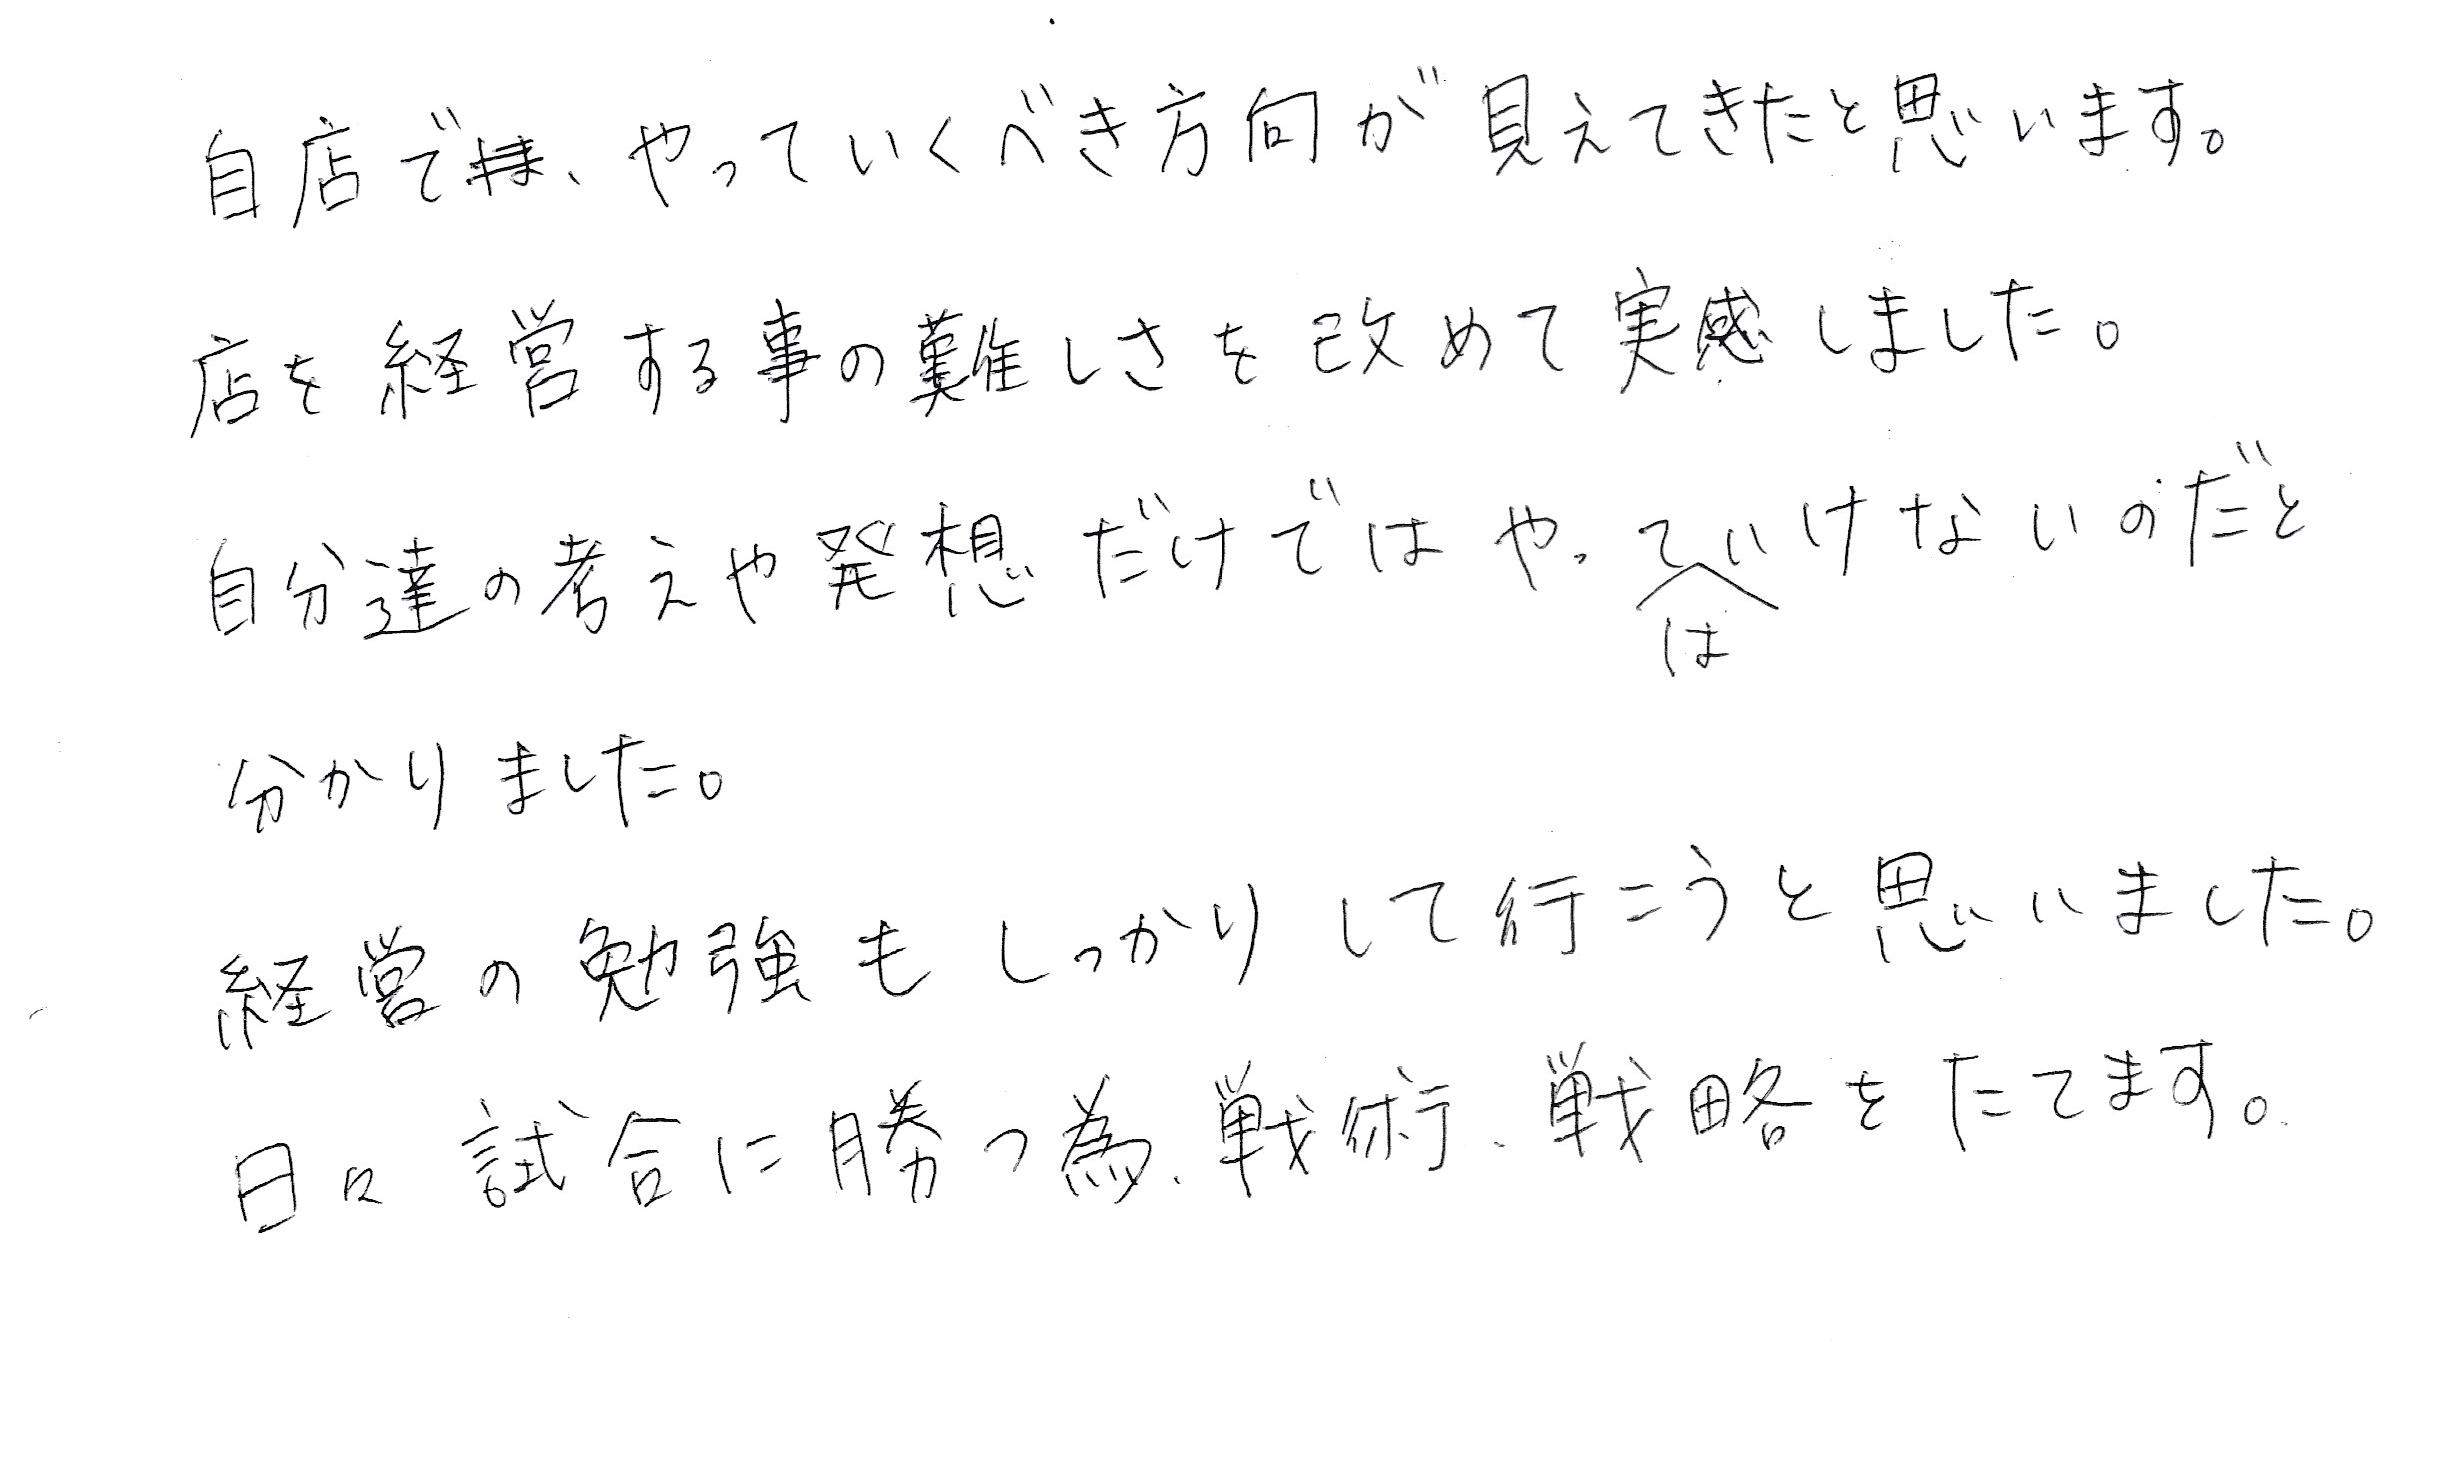 自店で、やっていくべき方向が見えてきたと思います。
店を経営する事の難しさを改めて実感しました。
自分達の考えや発想だけではやってはいけないのだと
分かりました。
経営の勉強もしっかりして行こうと思いました。
日々試合に勝つ為、戦術、戦略をたてます。